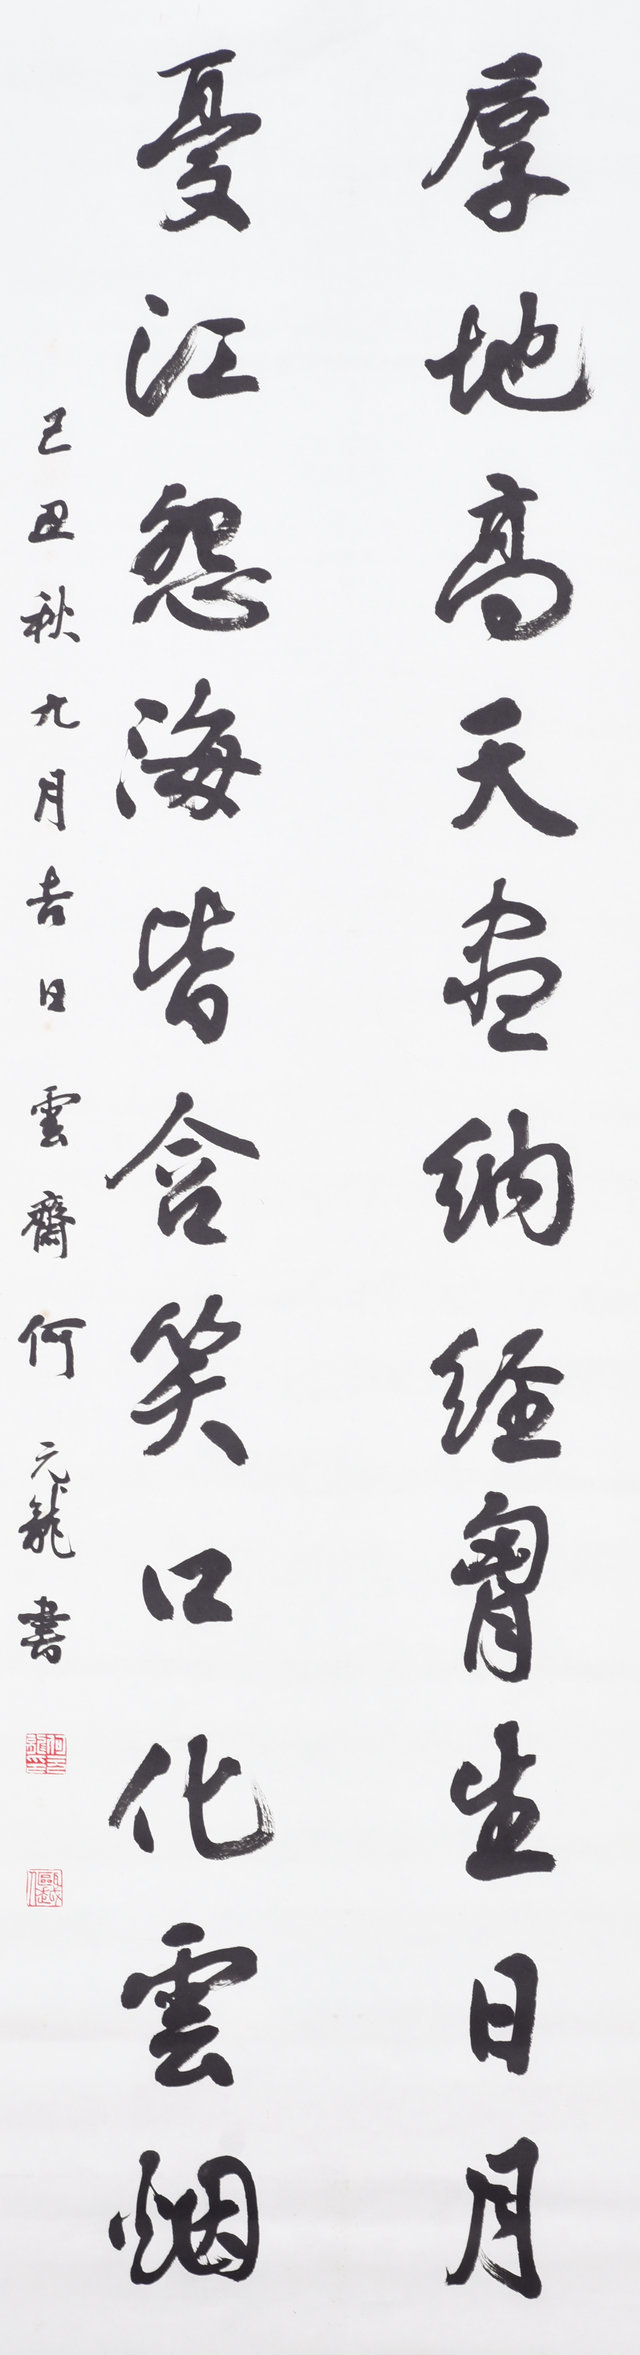 厚地高天盡納經胷生日月
憂江怨海皆含笑口化雲烟
己丑秋九月吉日雲齋何元龍書